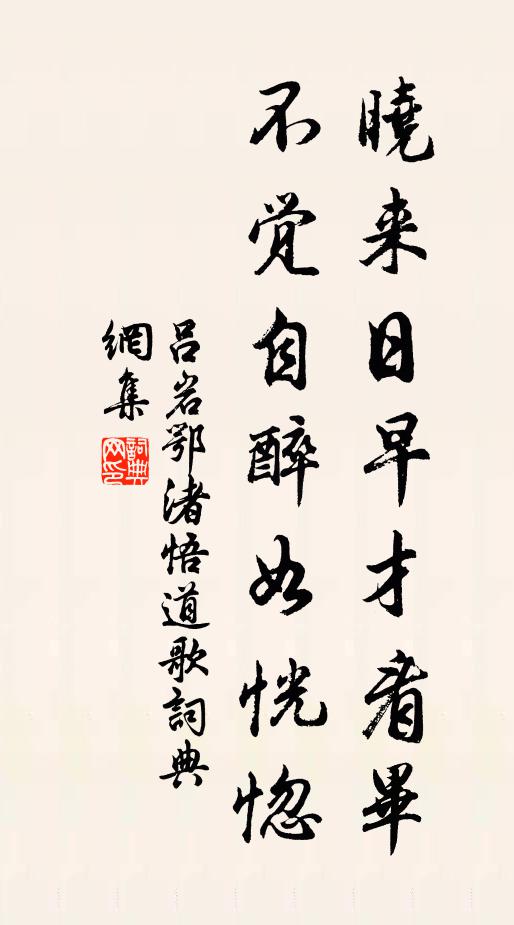 曉来日早才看畢
不觉自醉如恍惚
呂岩鄂渚悟道歌詞典
網集
詞典
网印